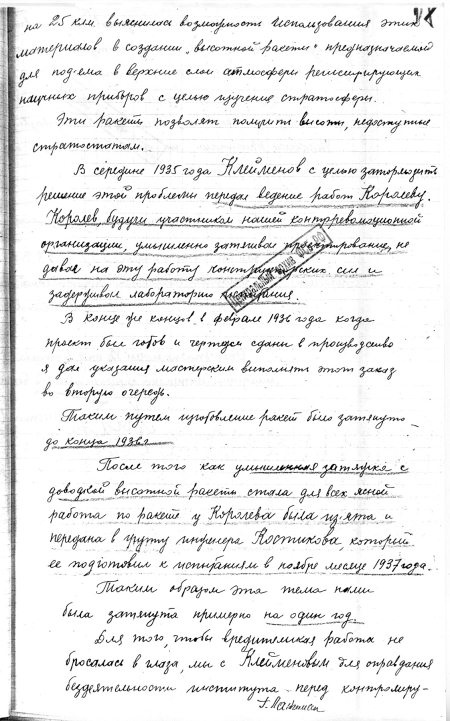 на 25 клм. выяснилась возможность использования этих
материалов в создании „высотной ракеты" предназначаемой
для под'ема в верхние слои атмосферы регистрирующих
научных приборов с целью изучение стратосферы.
Эти ракеты позволят получить высоты, недоступные
стратостатам.
В середине 1935 года Клейменов с целью затормозить
решение этой проблемы передал ведение работ Королеву.
Королев, будучи участником нашей контрреволюционной
организации, умышленно затягивал проектирование, не
давал на эту работу конструкторских сил и
задерживал лабораторию испытания.
В конце же концов в феврале 1936 года когда
проект был готов и чертежи сданы в производство
я дал указания мастерским выполнять этот заказ
во вторую очередь.
Таким путем изготовление ракет было затянуто
до конца 1936 г.
После того как умышленная затяжка с
доводкой высотной ракеты стала для всех ясной
работа по ракете у Королева была из'ята и
передана в группу инженера Костикова, который
ее подготовил к испытаниям в ноябре месяце 1937 года.
Таким образом эта тема нами
была затянута примерно на один год.
Для того, чтобы вредительская работа не
бросалась в глаза, мы с Клейменовым для оправдания
бездеятельности института перед контролиру-
Г. Лангемак